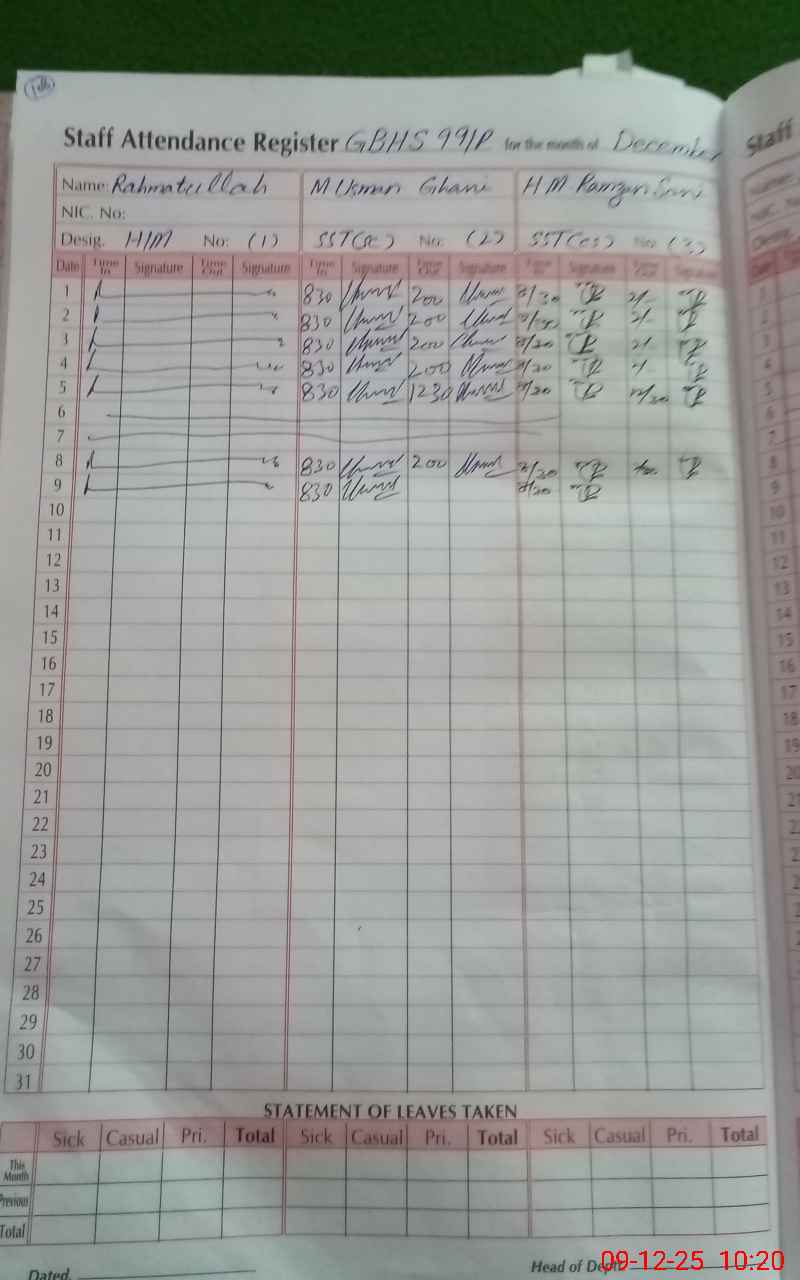 Staff Attendance Register GBHS 99/P for the month of December
Name: Rahmatullah M Usman Ghani H M Ramzan
NIC. No:
Desig. H/M No: (1) SST(sc) No: (2) SST(cs) No: (3)
Date Time In Signature Time Out Signature Time In Signature Time Out Signature Time In Signature Time Out Signature
1 830 200 8/30 2/-
2 830 200 8/30 2/-
3 830 200 8/30 2/-
4 830 200 8/30 2/-
5 830 1230 8/30 12/30
6
7
8 830 200 8/30
9 830 8/30
10
11
12
13
14
15
16
17
18
19
20
21
22
23
24
25
26
27
28
29
30
31
STATEMENT OF LEAVES TAKEN
Sick Casual Pri. Total Sick Casual Pri. Total Sick Casual Pri. Total
This Month
Previous
Total
Dated. Head of Dept.
09-12-25 10:20
Staff